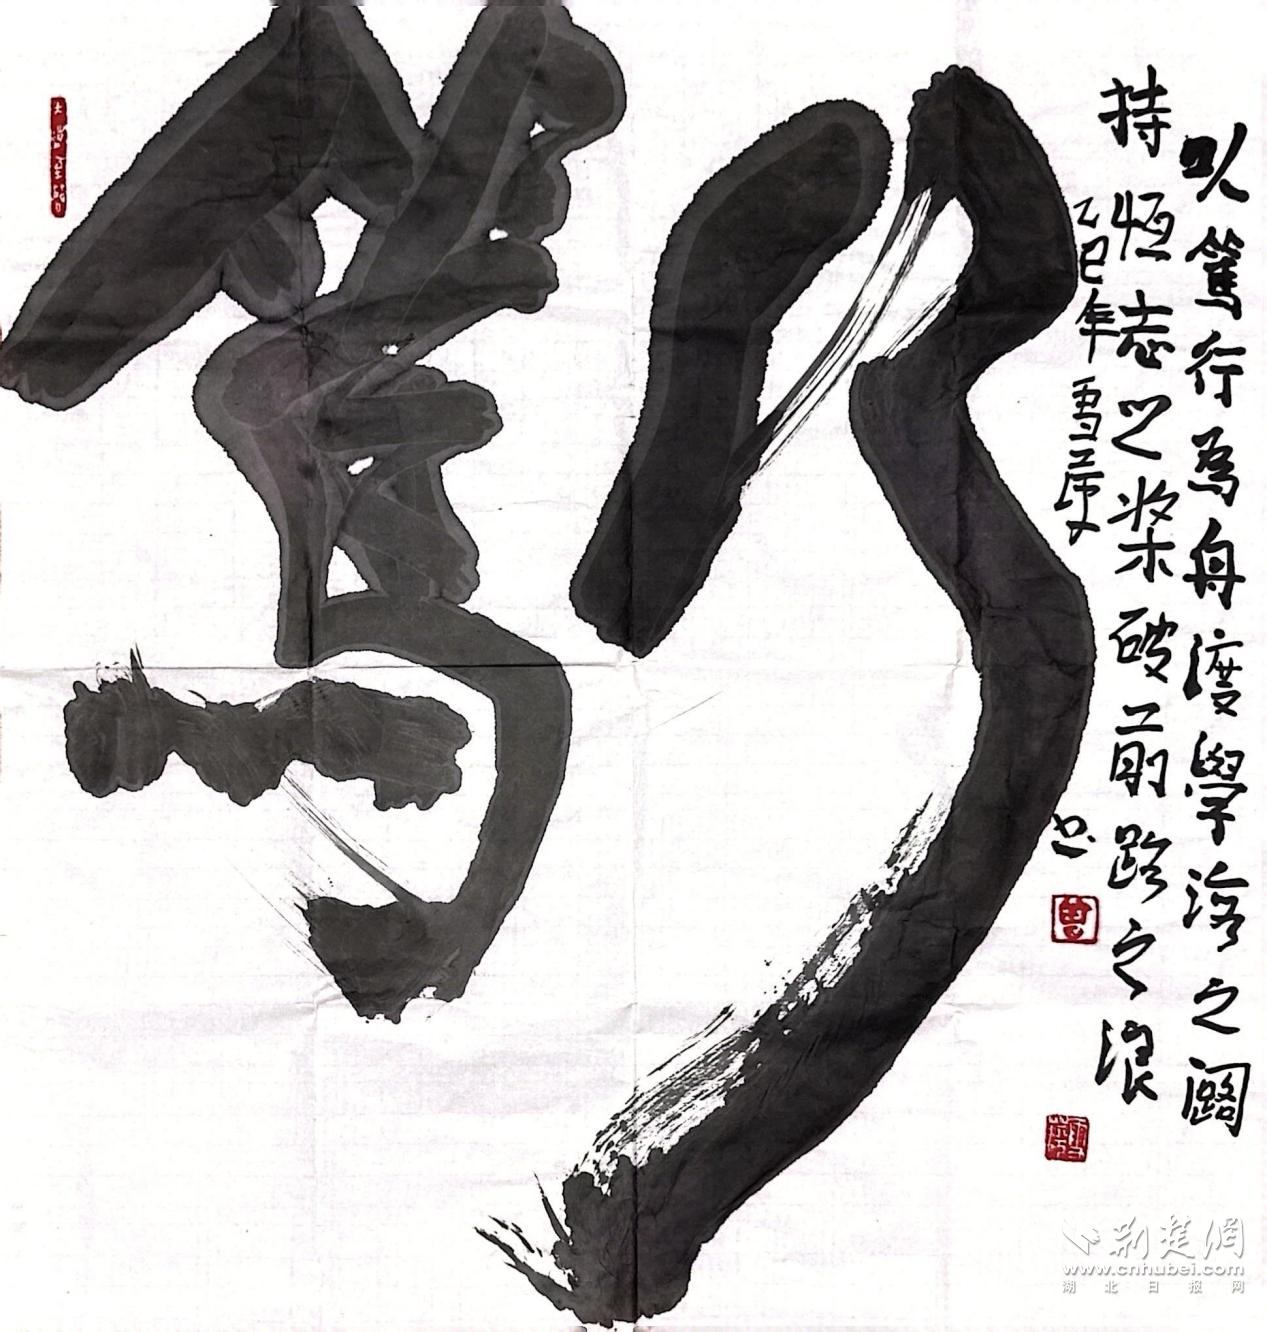 笃行
以篤行為舟渡學海之闊
持恒志之槳破前路之浪
乙巳年 雪 书
大道至簡
曾
荆楚網
www.cnhubei.com
湖北日报网